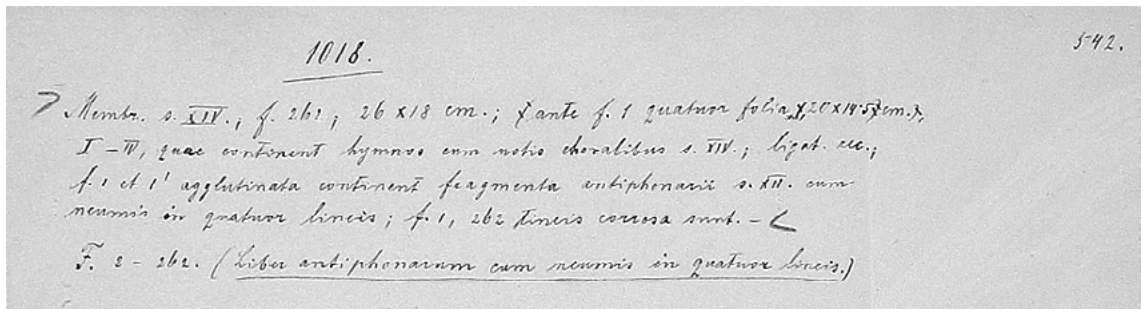 542.
1018.
Membr. s. XIV.; f. 262; 26 x 18 cm.; ante f. 1 quatuor folia, 20 x 14·5 cm.,
I – IV, quae continent hymnos cum notis choralibus s. XIV.; ligat. rec.;
f. 1 et 1' agglutinata continent fragmenta antiphonarii s. XII. cum
neumis in quatuor lineis; f. 1, 262 tineis corrosa sunt. –
F. 2 – 262. (Liber antiphonarum cum neumis in quatuor lineis.)